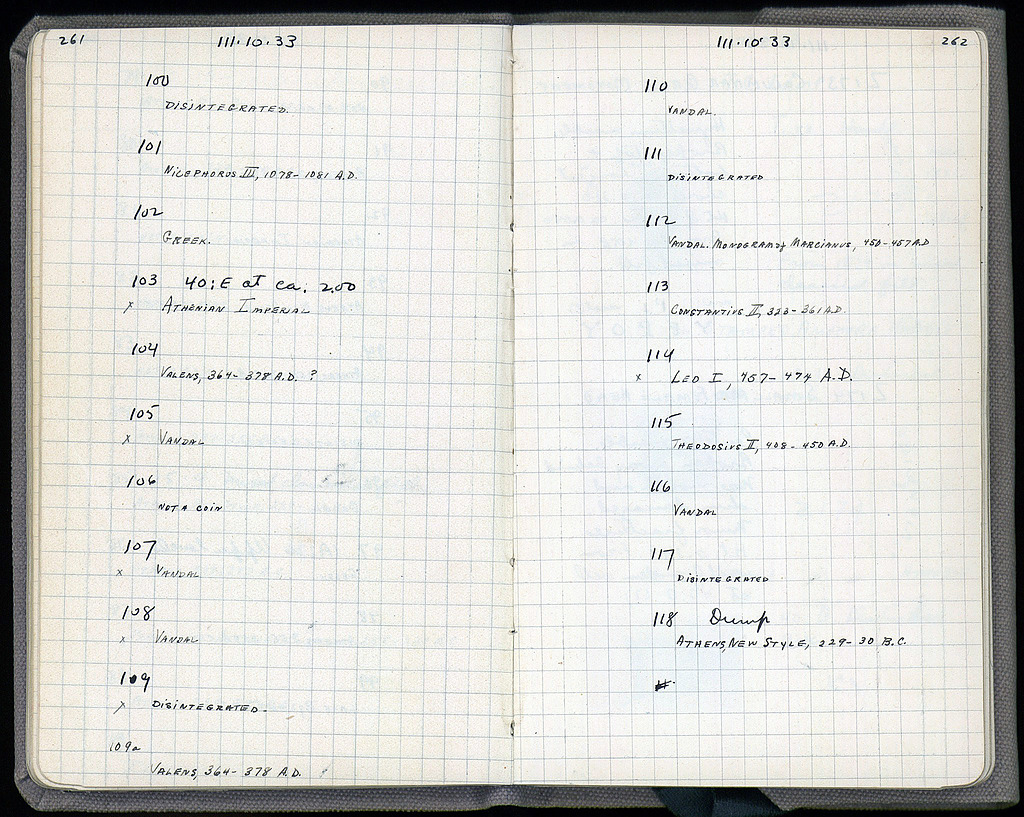 261
111·10·33
100
DISINTEGRATED.
101
NICEPHORUS III, 1078-1081 A.D.
102
GREEK.
103 40; E at ca. 2.00
x ATHENIAN IMPERIAL
104
VALENS, 364-378 A.D. ?
105
x VANDAL
106
NOT A COIN
107
x VANDAL
108
x VANDAL
109
x DISINTEGRATED-
109a
VALENS, 364-378 A.D. ?
111·10·33
262
110
VANDAL.
111
DISINTEGRATED
112
VANDAL. MONOGRAM of MARCIANUS, 450-457 A.D
113
CONSTANTIUS II, 323-361 A.D.
114
x LEO I, 457-474 A.D.
115
THEODOSIUS II, 408-450 A.D.
116
VANDAL
117
DISINTEGRATED
118 Dump
ATHENS, NEW STYLE, 229-30 B.C.